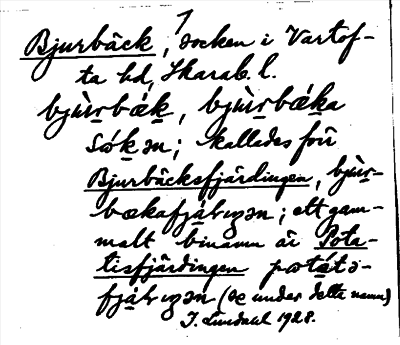 Bjurbäck, socken i Vartof-
ta hd, Skarab. l.
bjùrbæk, bjùrbæka
sókən; kallades förr
Bjurbäcksfjärdingen, bjùr-
bækafjálɩŋən; ett gam-
malt binamn är Pota-
tisfjärdingen, potátə-
fjálɩŋən (se under detta namn)
J. Lundahl 1928.